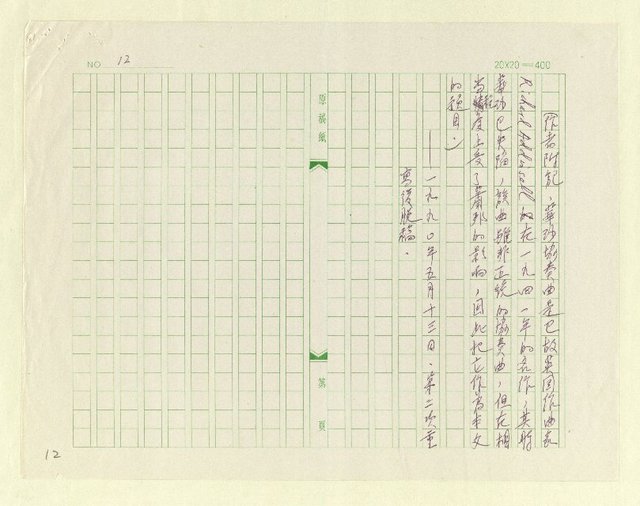 NO 12
20X20=400
〔作者附記：華沙協奏曲是已故英國作曲家
Richard Addinsell 的在一九四一年的名作，其時
華沙已變殤，該曲雖非正統的協奏曲，但在相
當程度上受了蕭邦的影響，因此把它作為本文
的題目。〕
——一九九〇年五月十三日．第二次重
寫後脫稿．
原稿紙
第 頁
12